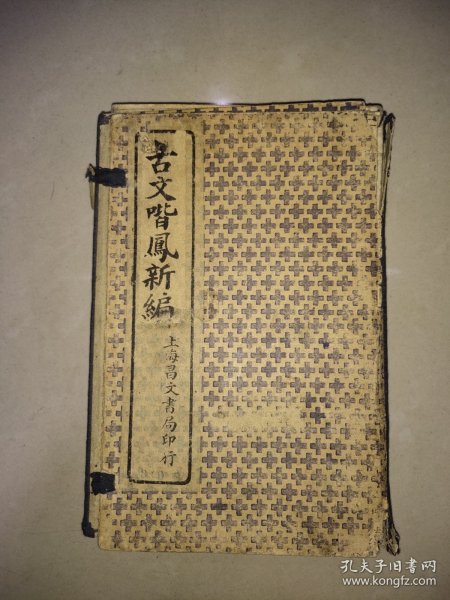 古文喈鳳新編
上海昌文書局印行
孔夫子旧书网
www.kongfz.com